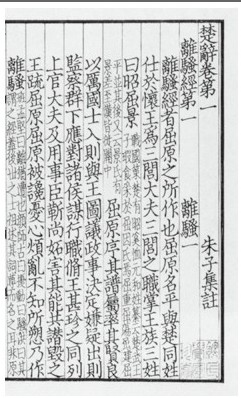 楚辭卷第一　朱子集註
離騷經第一　離騷一
離騷經者屈原之所作也屈原名平與楚同姓
仕於懷王為三閭大夫三閭之職掌王族三姓
曰昭屈景
屈原序其譜屬率其賢良
以厲國士入則與王圖議政事決定嫌疑出則
監察群下應對諸侯謀行職脩王甚珍之同列
上官大夫及用事臣靳尚妬害其能共譖毀之
王疏屈原屈原被讒憂心煩亂不知所愬乃作
離騷